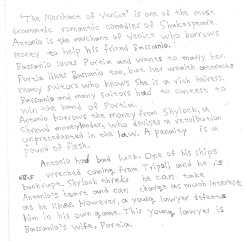 'The Merchant of Venice' is one of the most
dramatic romantic comedies of Shakespeare.
Antonio is the merchant of Venice who borrows
money to help his friend Bassanio.
Bassanio loves Portia and wants to marry her.
Portia likes Bassanio too, but her wealth attracts
many suitors who knows she is a rich heiress.
Bassanio and many suitors had to contest to
win the hand of Portia.
Antonio borrows the money from Shylock, a
Shrewd moneylender, who devises a retribution
unprecedented in the law. A penalty is a
pound of flesh.
Antonio had bad luck. One of his ships
was wrecked coming from Tripoli and he is
bankrupt. Shylock thinks he can take
Antonio's heart and can charge as much interest
as he likes. However, a young lawyer defeats
him in his own game. This young lawyer is
Bassanio's wife, Portia.